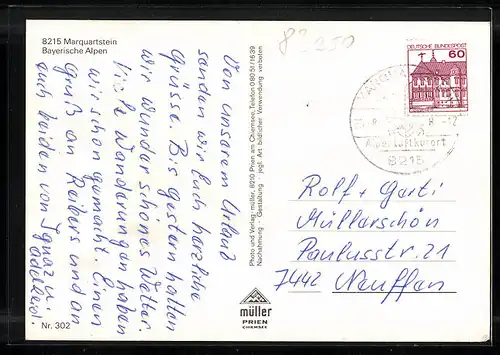 8215 Marquartstein
Bayerische Alpen
83250
Von unserem Urlaub
senden wir Euch herzliche
Grüsse. Bis gestern hatten
wir wunderschönes Wetter.
Viele Wanderungen haben
wir schon gemacht. Einen
Gruß an Reibers und an
euch beiden von Ignaz u.
Adelheid!
Nr. 302
Photo und Verlag müller, 8210 Prien am Chiemsee, Telefon 08051/1639
Nachahmung - Gestaltung - jegl. Art bildlicher Verwendung verboten
müller
PRIEN
CHIEMSEE
DEUTSCHE BUNDESPOST
60
Alpen Luftkurort
8215
Rolf + Gerti
Müllerschön
Paulusstr. 21
7442 Neuffen